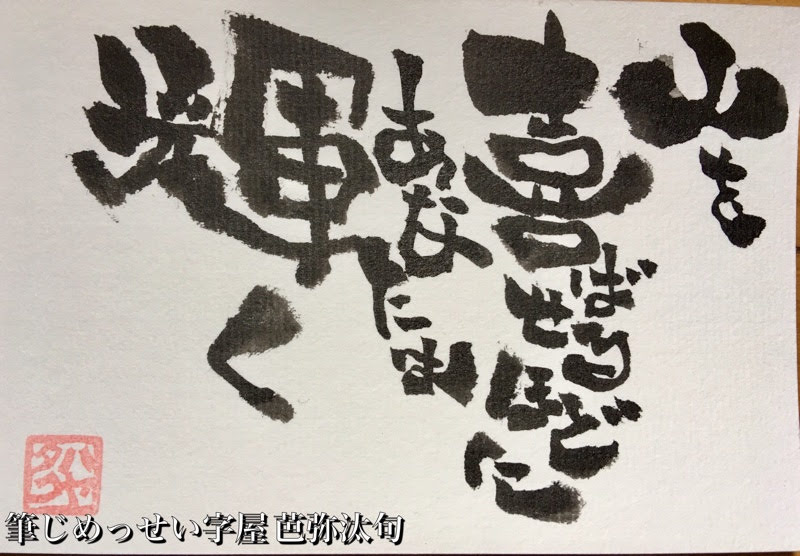 山を
喜ばせるほどに
あなたは
輝く
筆じめっせい字屋 芭弥汰旬